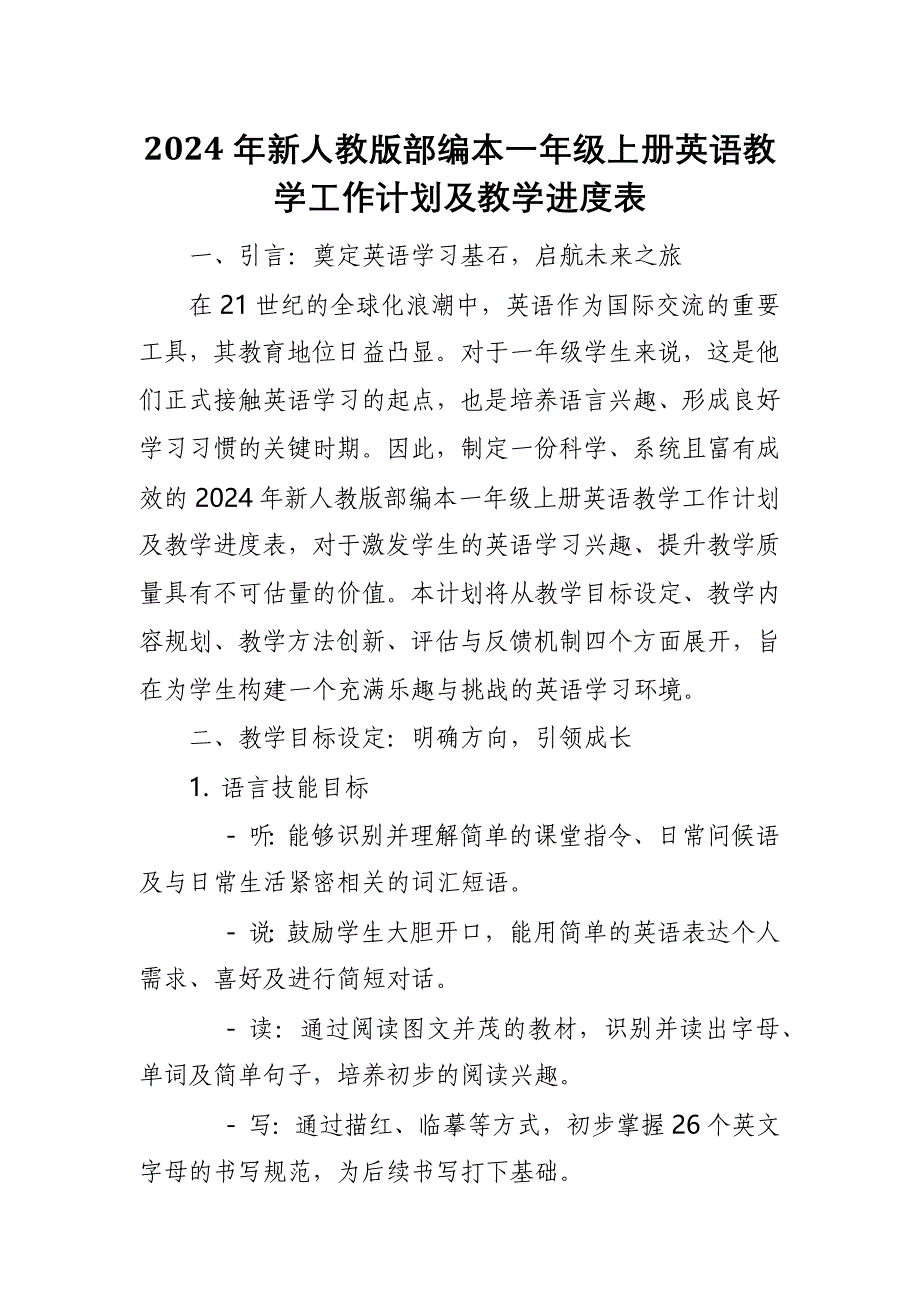 2024 年新人教版部编本一年级上册英语教
学工作计划及教学进度表
一、引言：奠定英语学习基石，启航未来之旅
在 21 世纪的全球化浪潮中，英语作为国际交流的重要
工具，其教育地位日益凸显。对于一年级学生来说，这是他
们正式接触英语学习的起点，也是培养语言兴趣、形成良好
学习习惯的关键时期。因此，制定一份科学、系统且富有成
效的 2024 年新人教版部编本一年级上册英语教学工作计划
及教学进度表，对于激发学生的英语学习兴趣、提升教学质
量具有不可估量的价值。本计划将从教学目标设定、教学内
容规划、教学方法创新、评估与反馈机制四个方面展开，旨
在为学生构建一个充满乐趣与挑战的英语学习环境。
二、教学目标设定：明确方向，引领成长
1. 语言技能目标
- 听：能够识别并理解简单的课堂指令、日常问候语
及与日常生活紧密相关的词汇短语。
- 说：鼓励学生大胆开口，能用简单的英语表达个人
需求、喜好及进行简短对话。
- 读：通过阅读图文并茂的教材，识别并读出字母、
单词及简单句子，培养初步的阅读兴趣。
- 写：通过描红、临摹等方式，初步掌握 26 个英文
字母的书写规范，为后续书写打下基础。